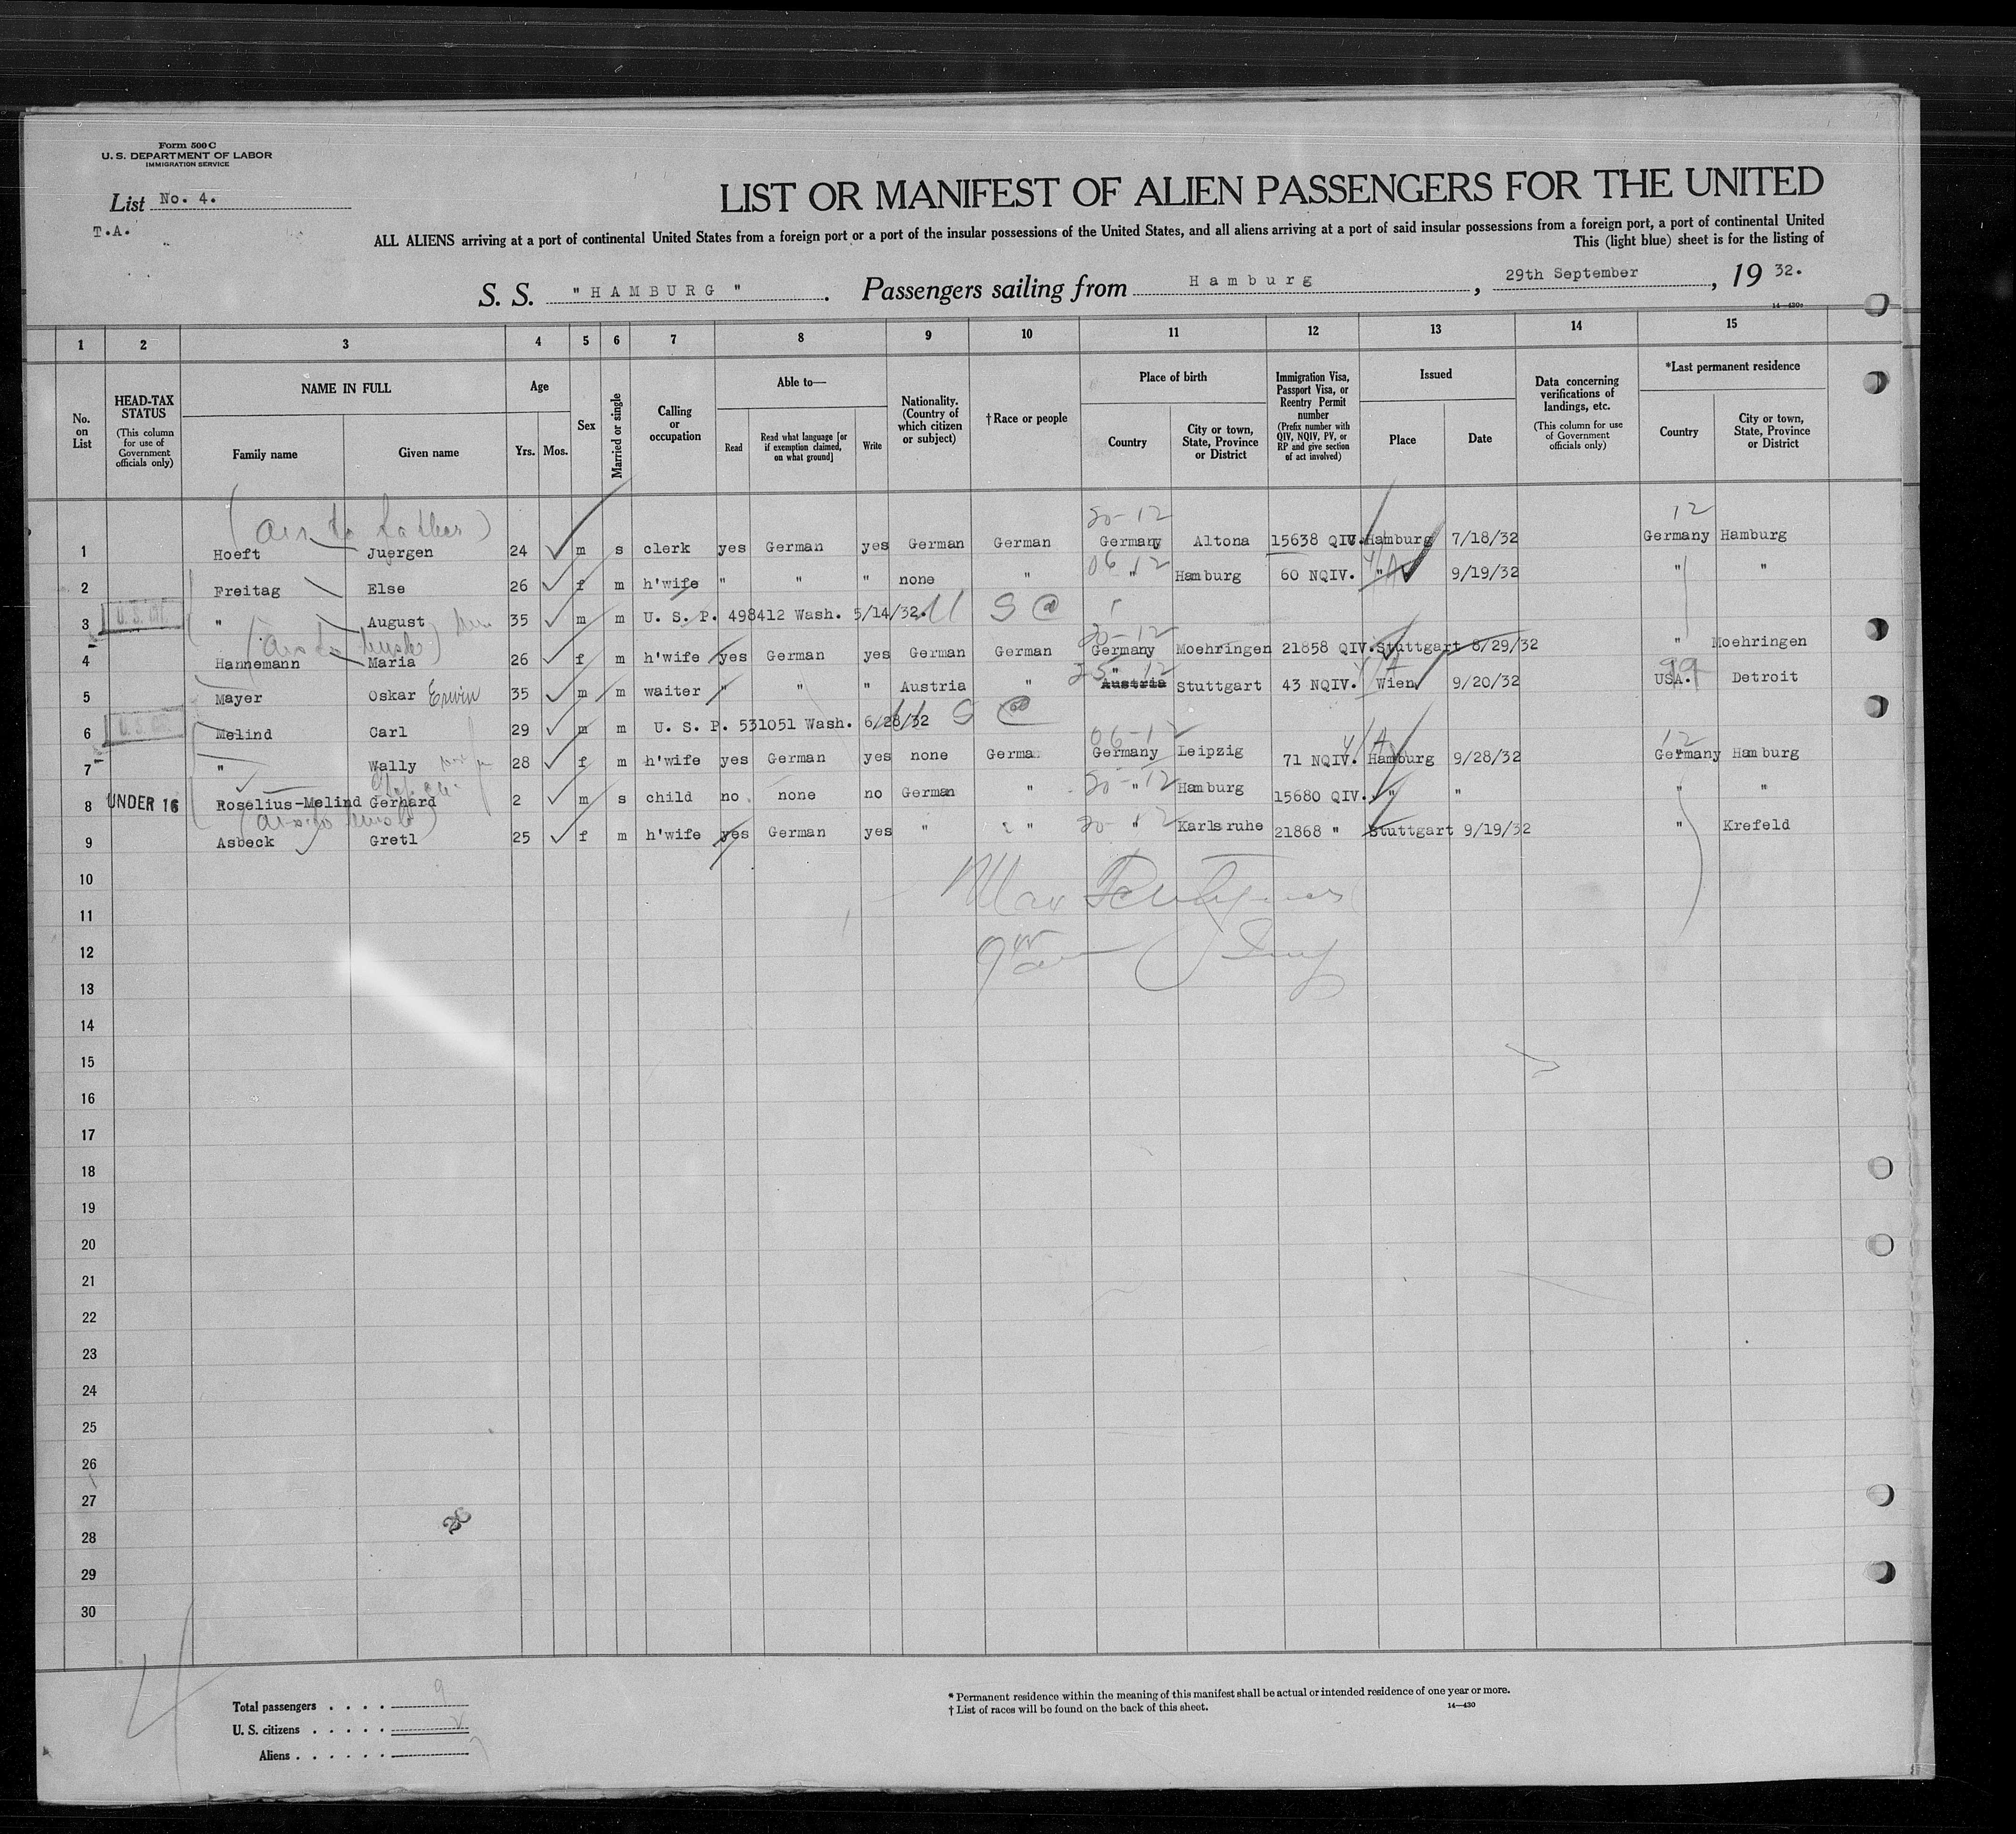 Form 500 C
U. S. DEPARTMENT OF LABOR
IMMIGRATION SERVICE
List No. 4.
T.A.
LIST OR MANIFEST OF ALIEN PASSENGERS FOR THE UNITED
ALL ALIENS arriving at a port of continental United States from a foreign port or a port of the insular possessions of the United States, and all aliens arriving at a port of said insular possessions from a foreign port, a port of continental United
This (light blue) sheet is for the listing of
S. S. " HAMBURG " . Passengers sailing from Hamburg , 29th September , 19 32.
14—430c
1 2 3 4 5 6 7 8 9 10 11 12 13 14 15
No. on List
HEAD-TAX STATUS (This column for use of Government officials only)
NAME IN FULL
Family name Given name
Age
Yrs. Mos.
Sex
Married or single
Calling or occupation
Able to—
Read Read what language [or if exemption claimed, on what ground] Write
Nationality. (Country of which citizen or subject)
†Race or people
Place of birth
Country City or town, State, Province or District
Immigration Visa, Passport Visa, or Reentry Permit number (Prefix number with QIV, NQIV, PV, or RP and give section of act involved)
Issued
Place Date
Data concerning verifications of landings, etc. (This column for use of Government officials only)
*Last permanent residence
Country City or town, State, Province or District
(air to father) 20-12 12
1 Hoeft Juergen 24 m s clerk yes German yes German German Germany Altona 15638 QIV. Hamburg 7/18/32 Germany Hamburg
06 12
2 Freitag Else 26 f m h'wife " " " none " " Hamburg 60 NQIV. " 9/19/32 " "
3 U.S. CIT. " August 35 m m U. S. P. 498412 Wash. 5/14/32. U S @
20-12
4 Hannemann Maria 26 f m h'wife yes German yes German German Germany Moehringen 21858 QIV. Stuttgart 8/29/32 " Moehringen
25-12 99
5 Mayer Oskar Erwin 35 m m waiter " " " Austria " " Austria Stuttgart 43 NQIV. Wien 9/20/32 USA. Detroit
6 U.S. CIT. Melind Carl 29 m m U. S. P. 531051 Wash. 6/28/32 U S @
06-12 4/A 12
7 " Wally 28 f m h'wife yes German yes none German Germany Leipzig 71 NQIV. Hamburg 9/28/32 Germany Hamburg
20-12
8 UNDER 16 Roselius-Melind Gerhard 2 m s child no none no German " " Hamburg 15680 QIV. " " " "
9 Asbeck Gretl 25 f m h'wife yes German yes " " 20-12 " Karlsruhe 21868 " Stuttgart 9/19/32 " Krefeld
10
11
12
13
14
15
16
17
18
19
20
21
22
23
24
25
26
27
28
29
30
Total passengers . . . . 9
U. S. citizens . . . . .
Aliens . . . . . . 7
* Permanent residence within the meaning of this manifest shall be actual or intended residence of one year or more.
† List of races will be found on the back of this sheet.
14—430